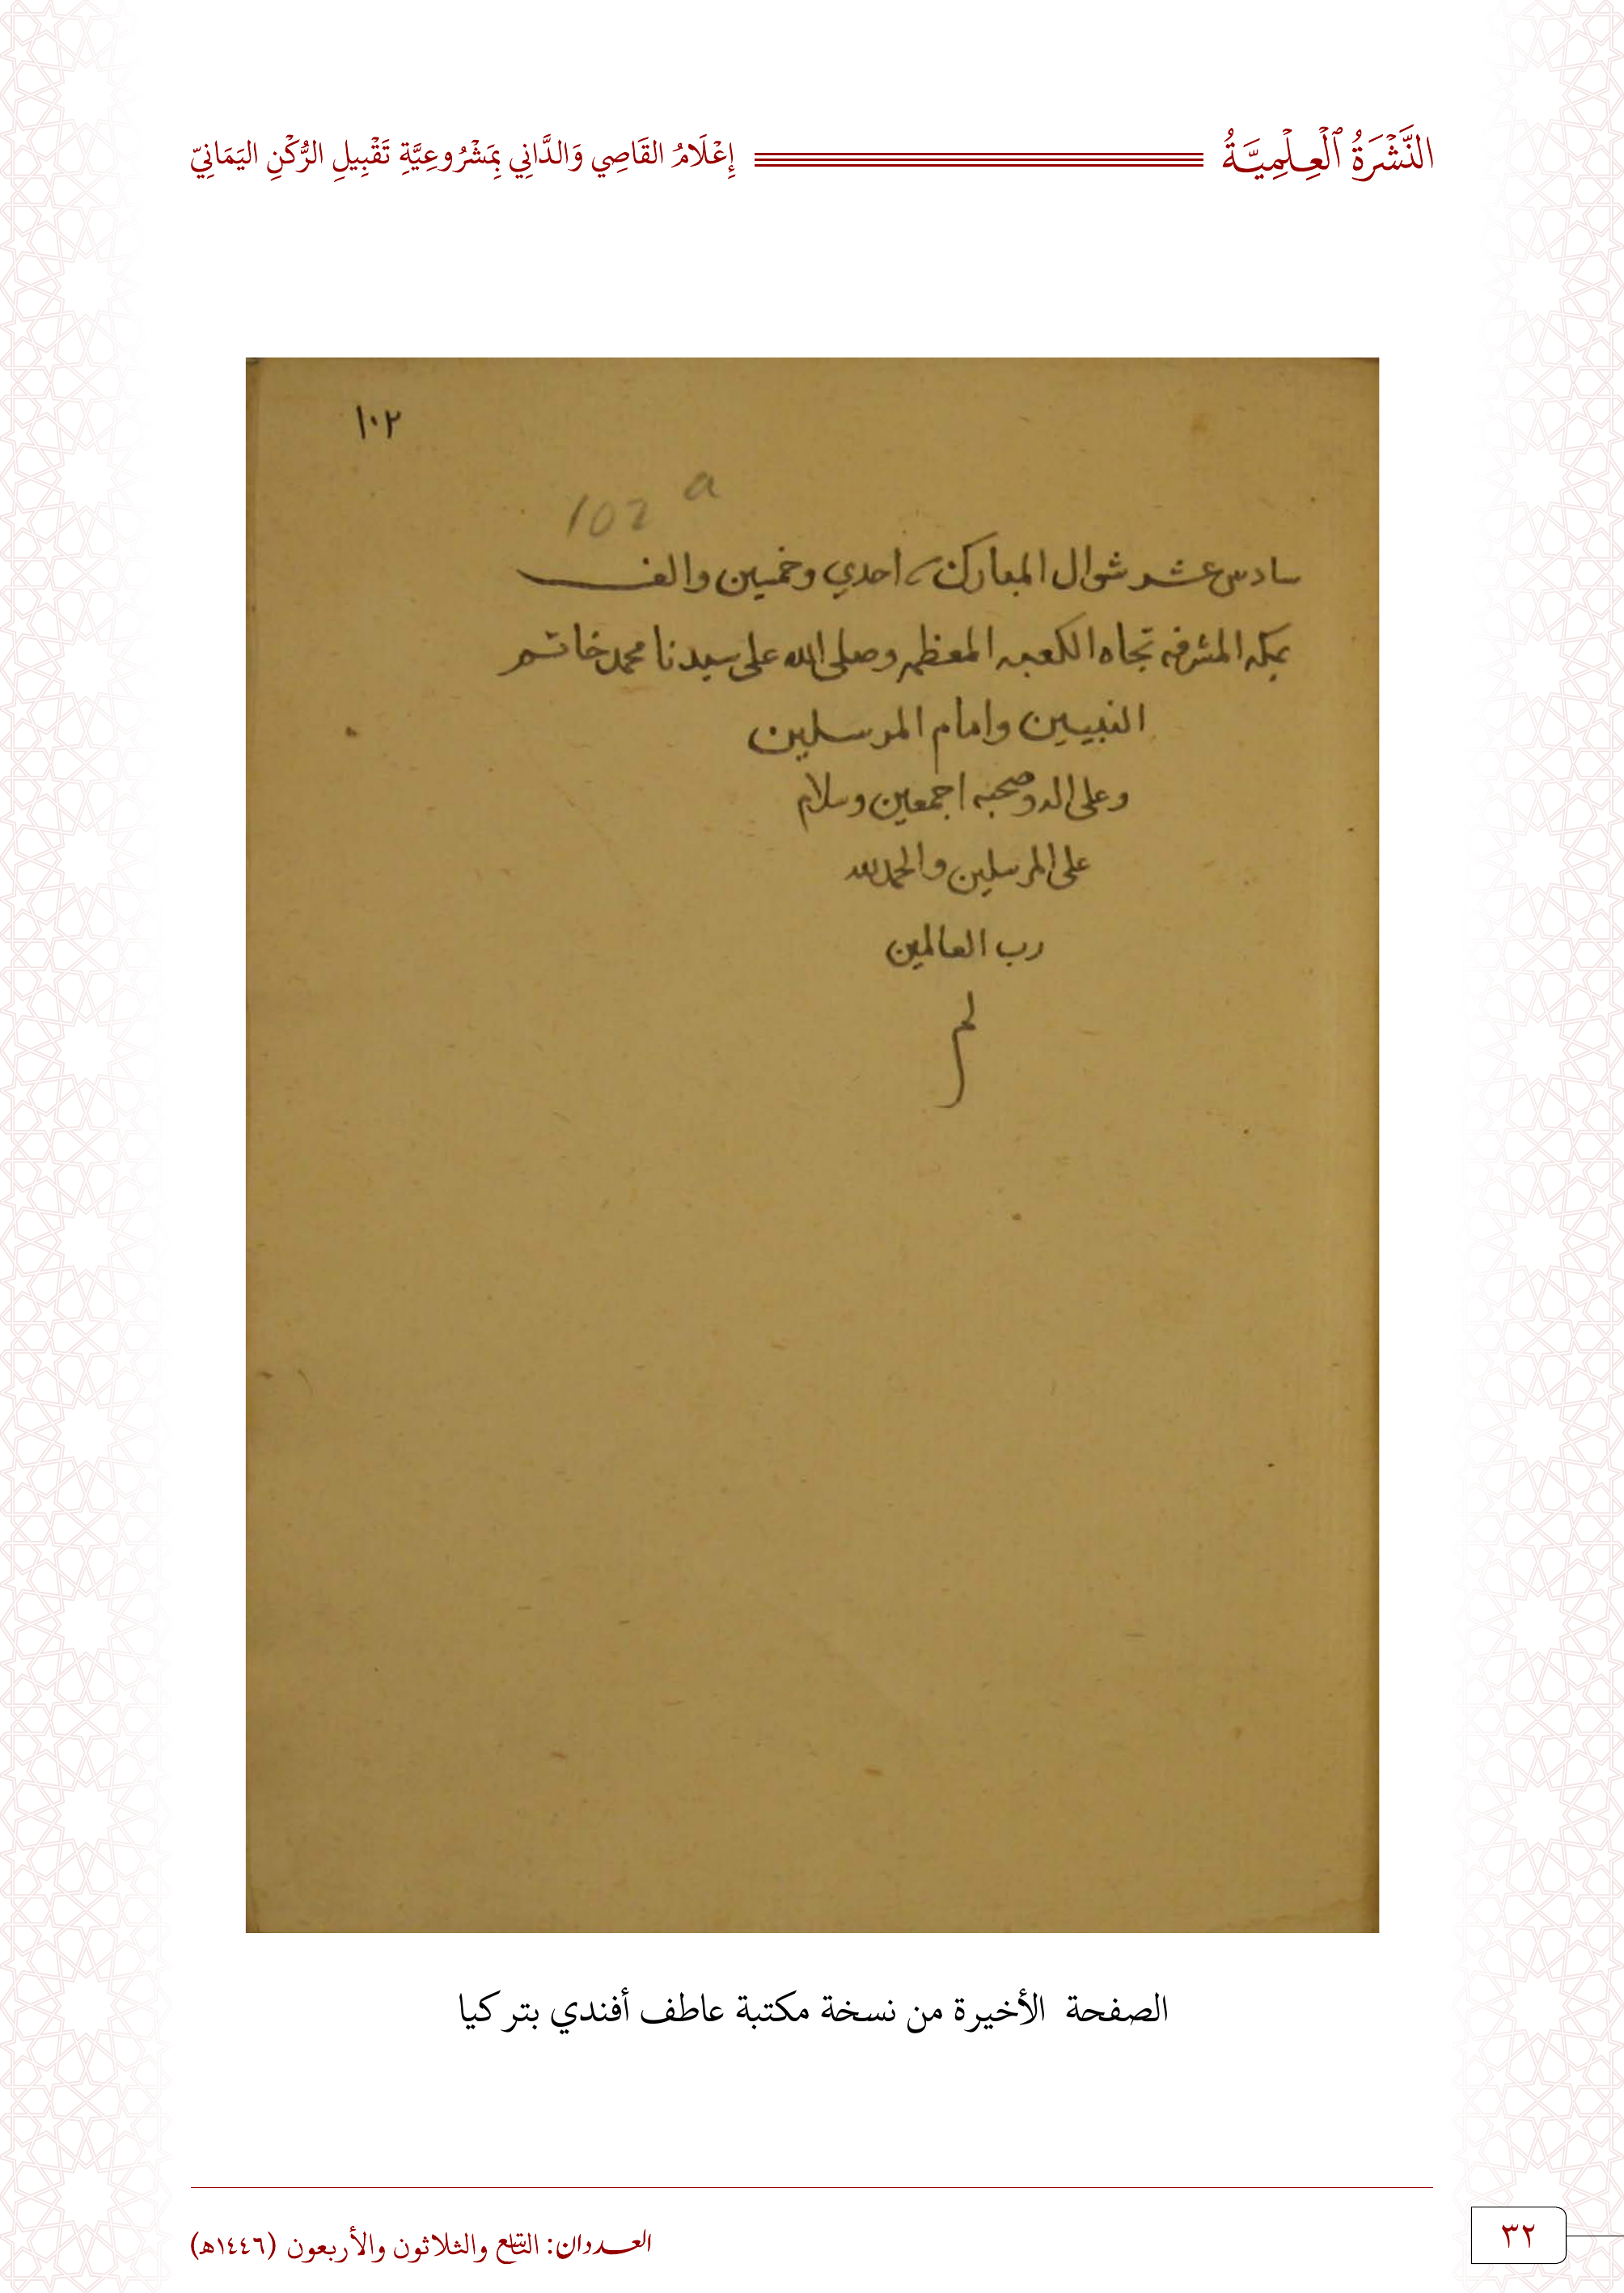 النَّشْرَةُ ٱلْعِلْمِيَّةُ
إِعْلَامُ القَاصِي وَالدَّانِي بِمَشْرُوعِيَّةِ تَقْبِيلِ الرُّكْنِ اليَمَانِيّ
١٠٢
102 a
سادس عشر شوال المبارك احدي وخمسين والف
بمكه المشرفه تجاه الكعبه المعظمه وصلى الله على سيدنا محمد خاتم
النبيين وامام المرسلين
وعلى اله وصحبه اجمعين وسلام
على المرسلين والحمد لله
رب العالمين
الصفحة الأخيرة من نسخة مكتبة عاطف أفندي بتركيا
العددان: التاسع والثلاثون والأربعون (١٤٤٦هـ)
٣٢